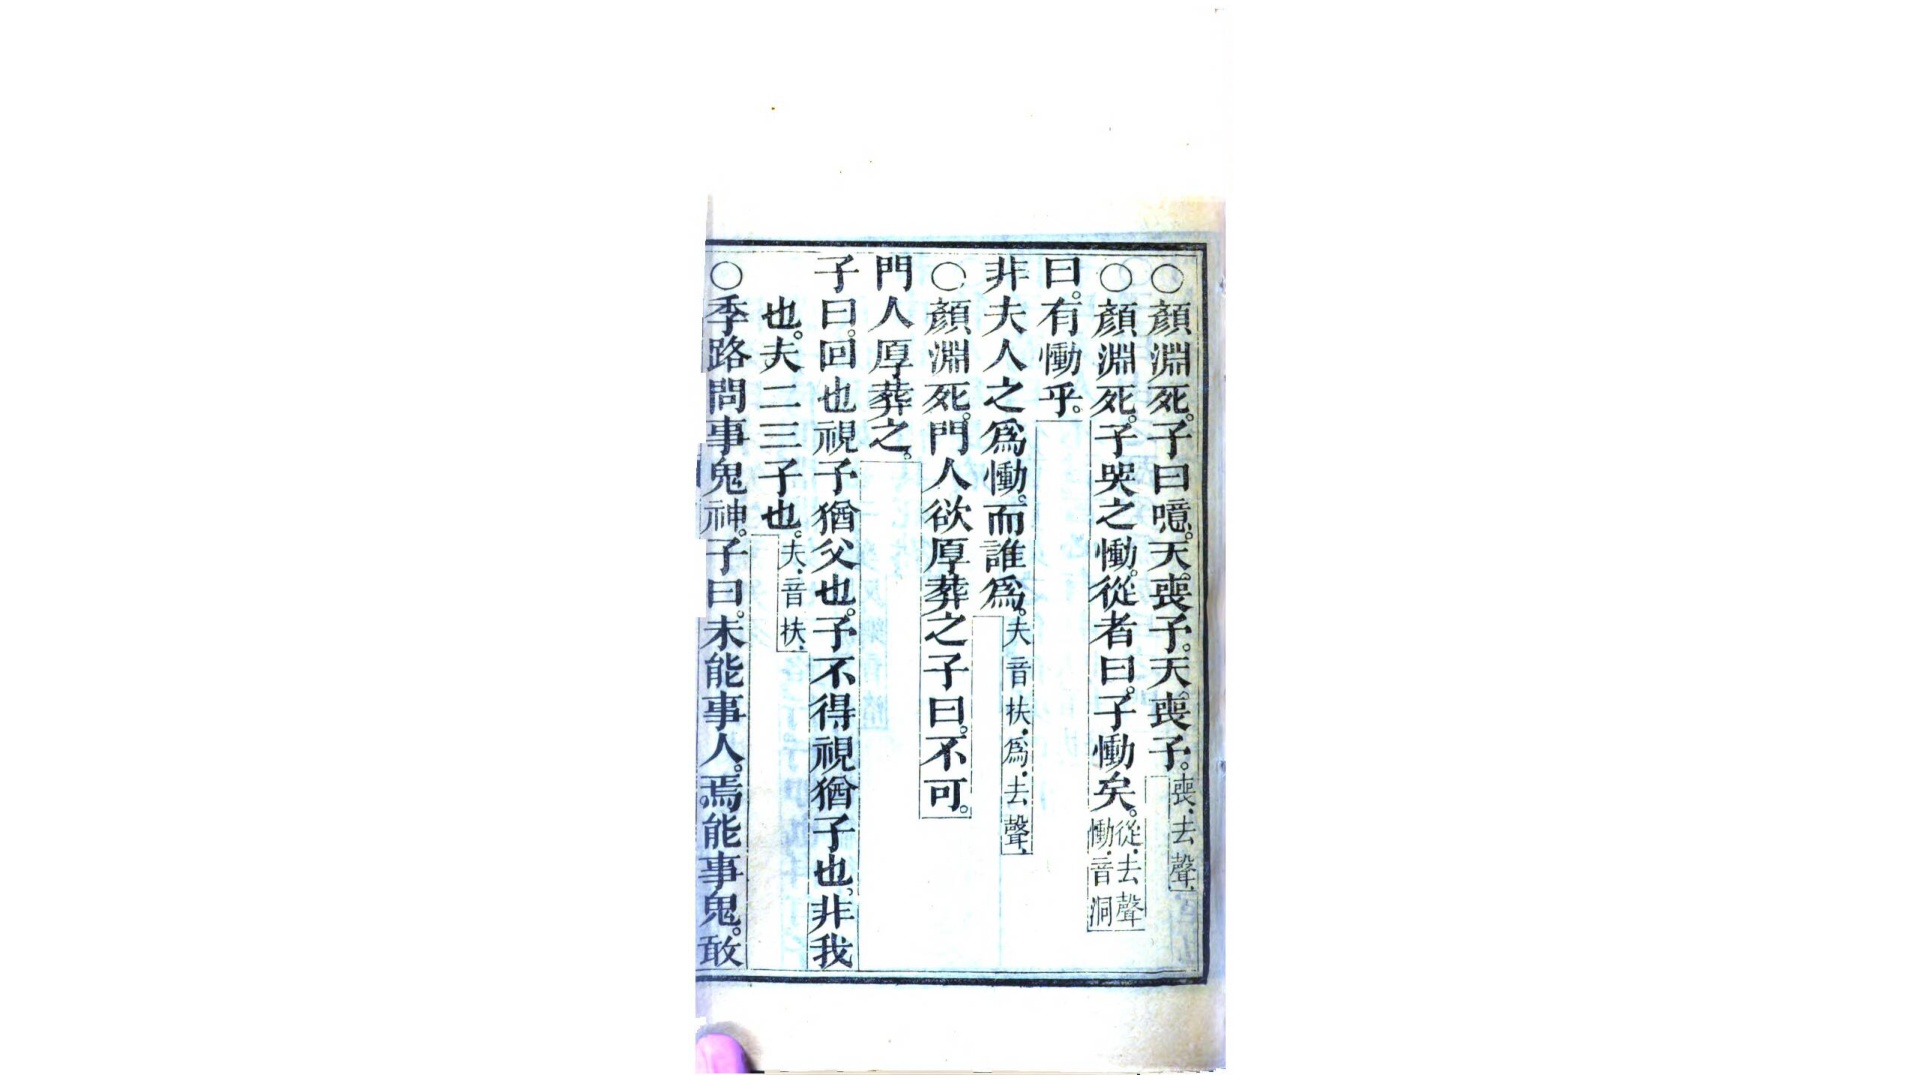 ○顏淵死。子曰噫。天喪予。天喪予。喪、去聲、
○顏淵死。子哭之慟。從者曰。子慟矣。從、去聲慟、音洞
曰。有慟乎。
非夫人之爲慟。而誰爲。夫音扶、爲、去聲、
○顏淵死。門人欲厚葬之子曰。不可。
門人厚葬之。
子曰。回也視予猶父也。予不得視猶子也。非我
也。夫二三子也。夫、音扶、
○季路問事鬼神。子曰。未能事人。焉能事鬼。敢